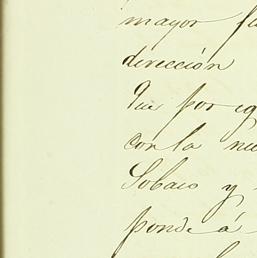 mayor fu
dirección
Que por eg
con la nu
Sobaco y
ponde á